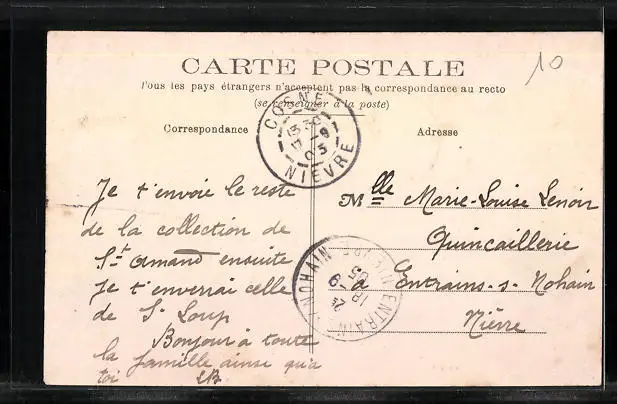 10
CARTE POSTALE
Tous les pays étrangers n'acceptent pas la correspondance au recto
(se renseigner à la poste)
Correspondance
Adresse
COSNE
13 30
17 - 9
05
NIÈVRE
Je t'envoie le reste
de la collection de
St Amand ensuite
Je t'enverrai celle
de St Loup
Bonjour à toute
la famille ainsi qu'à
toi
Mlle Marie-Louise Lenoir
Quincaillerie
à Entrains-s-Nohain
Nièvre
ENTRAINS NOHAIN
NIÈVRE